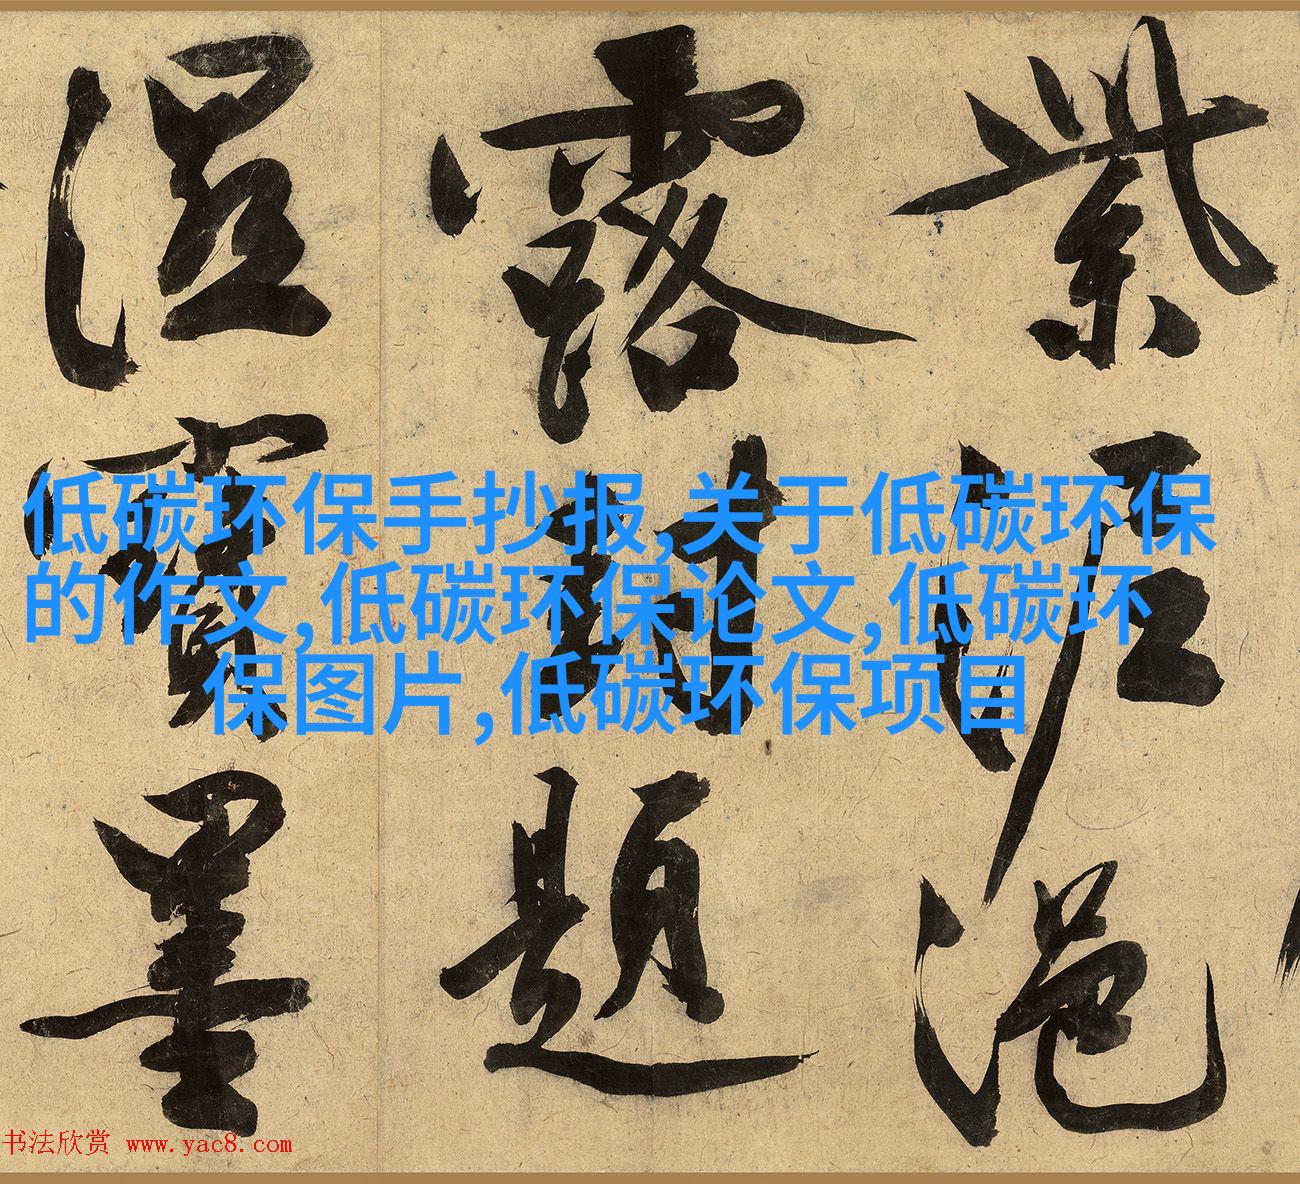 紫泥浥
露封題
溼寶墨
低碳环保手抄报,关于低碳环保
的作文,低碳环保论文,低碳环
保图片,低碳环保项目
书法欣赏 www.yac8.com